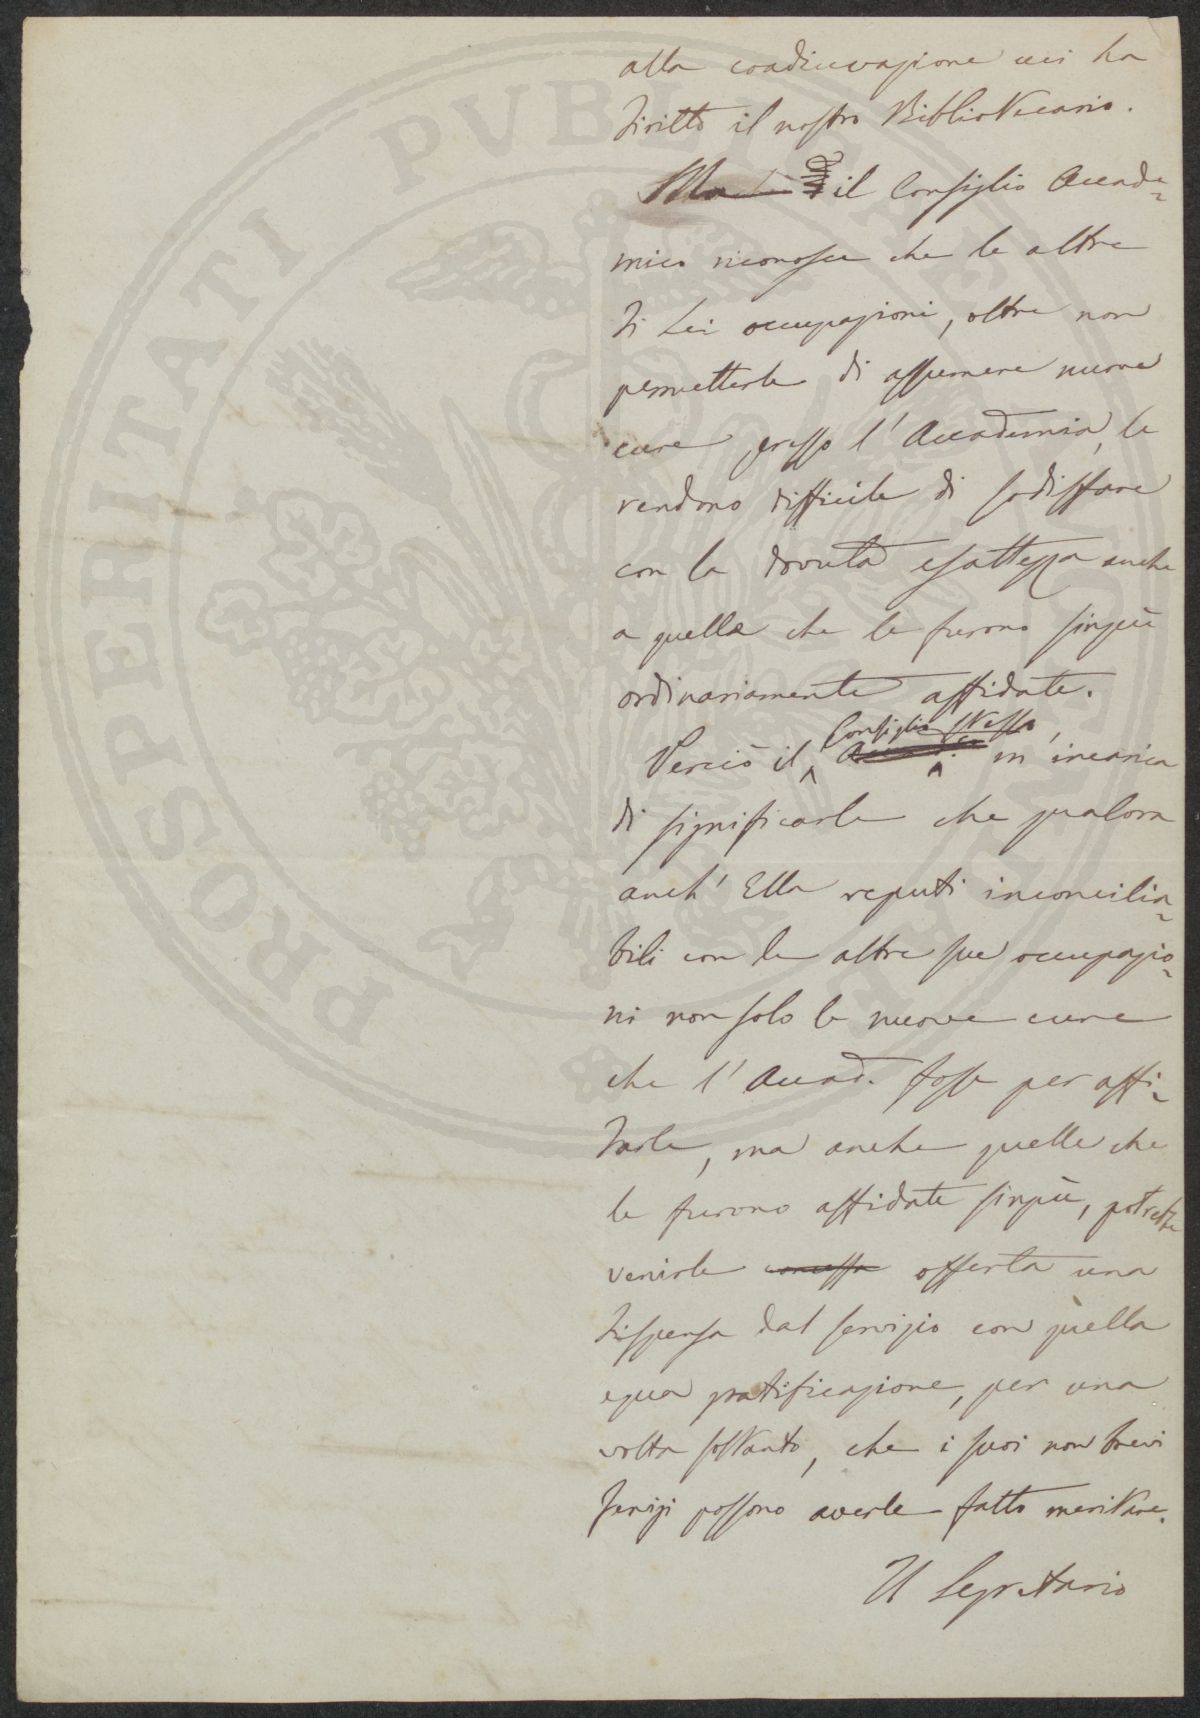 alla coadiuvazione cui ha
diritto il nostro Bibliotecario.
Ma il Consiglio Accade-
mico riconosce che le altre
di Lei occupazioni, oltre non
permetterle di assumere nuove
cure presso l'Accademia, le
rendono difficile di sodisfare
con la dovuta esattezza anche
a quelle che le furono sinquì
ordinariamente affidate.
Consiglio stesso
Perciò il m'incarica
di significarle che qualora
anch'Ella reputi inconcilia-
bili con le altre sue occupazio-
ni non solo le nuove cure
che l'Accad. fosse per affi-
darle, ma anche quelle che
le furono affidate sinquì, potrebbe
venirle concessa offerta una
dispensa dal servizio con quella
equa gratificazione, per una
volta soltanto, che i suoi non brevi
servizi possono averle fatto meritare.
Il Segretario
PROSPERITATI PVBLICAE